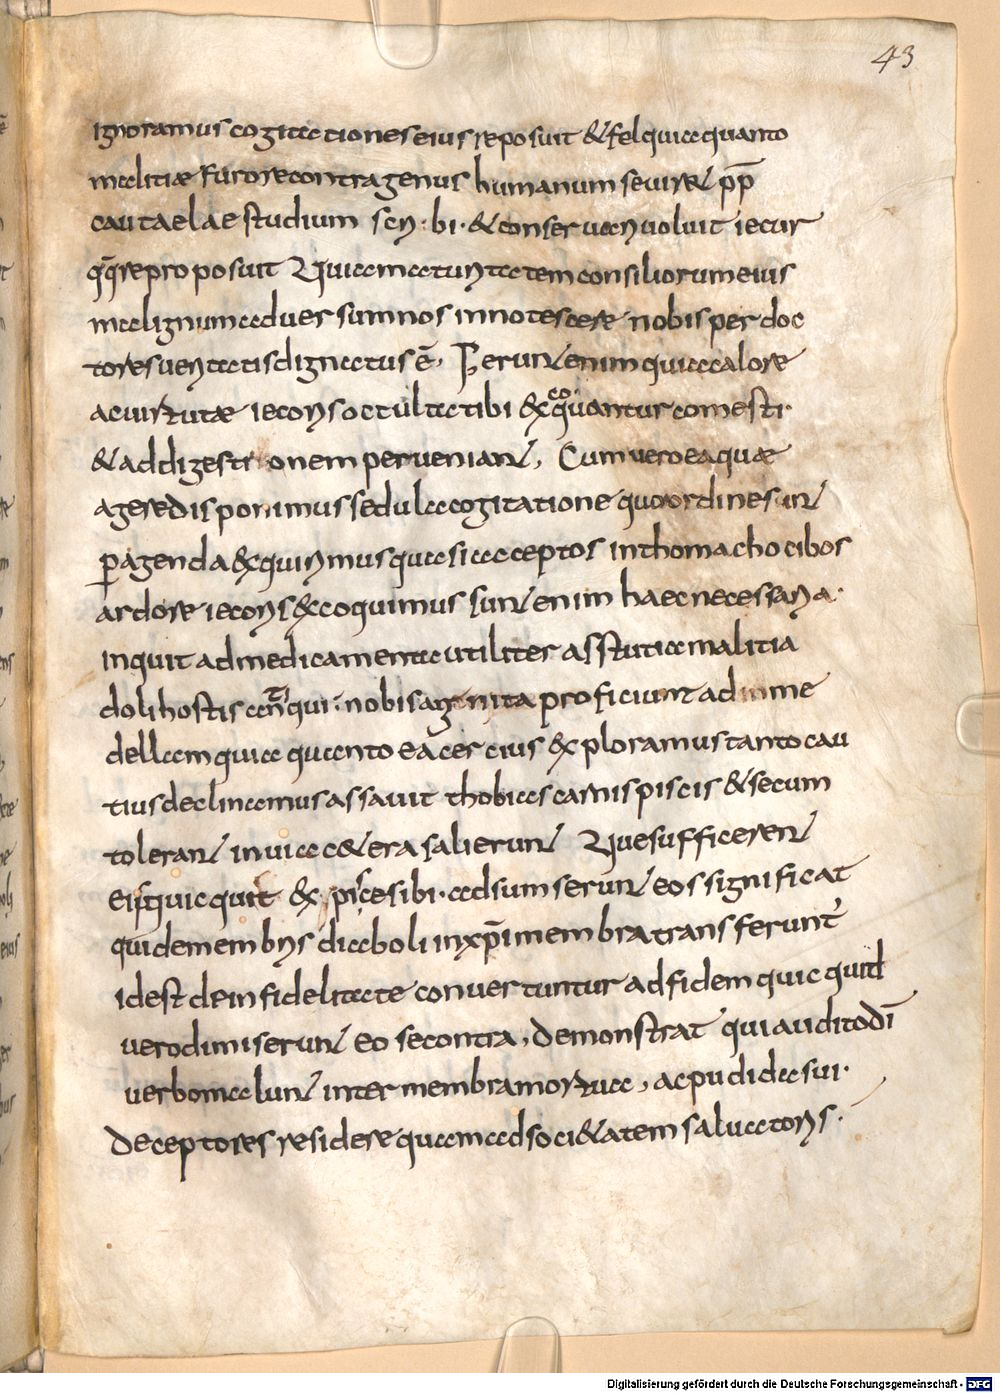 43
ignoramus cogitationes eius reposuit & fel quia quanto
malitiae furore contra genus humanum seuir& pp̄
cautaelae studium scri bi · & conseruari uoluit iecur
qq̄ reproposuit Quia maturitatem consiliorum eius
malignum aduersum nos innotescere nobis per doc
tores ueritatis dignatus ē, Ferunt enim quia calore
ac uirtutae iecoris occulta tibi excoquantur comesti·
& ad digestionem perueniant, Cum uero ea quae
agere disponimus sedula cogitatione quo ordine sint
peragenda exquirimus quasi acceptos in thomacho cibos
ardore iecoris excoquimus sunt enim haec necessaria·
inquit ad medicamenta utiliter asstutia malitia
doli hostis antiqui· nobis agnita proficiunt ad me
dellam quia quanto ea cercius exploramus tanto cau
tius declinamus assauit thobias carnis piscis & secum
tolerant in uia c&era salierunt Que sufficerent
Eisquicquit ex pisce sibi· adsumserunt eos significat
qui de membris diaboli in xp̄i membra transferuntur
id est de infidelitate conuertuntur ad fidem quicquid
uero dimiserunt eos e contra, demonstrat qui audito dī
uerbo malunt inter membra mortua, ac pudida sui·
Deceptores residere quam ad soci&atem saluatoris·
Digitalisierung gefördert durch die Deutsche Forschungsgemeinschaft - DFG